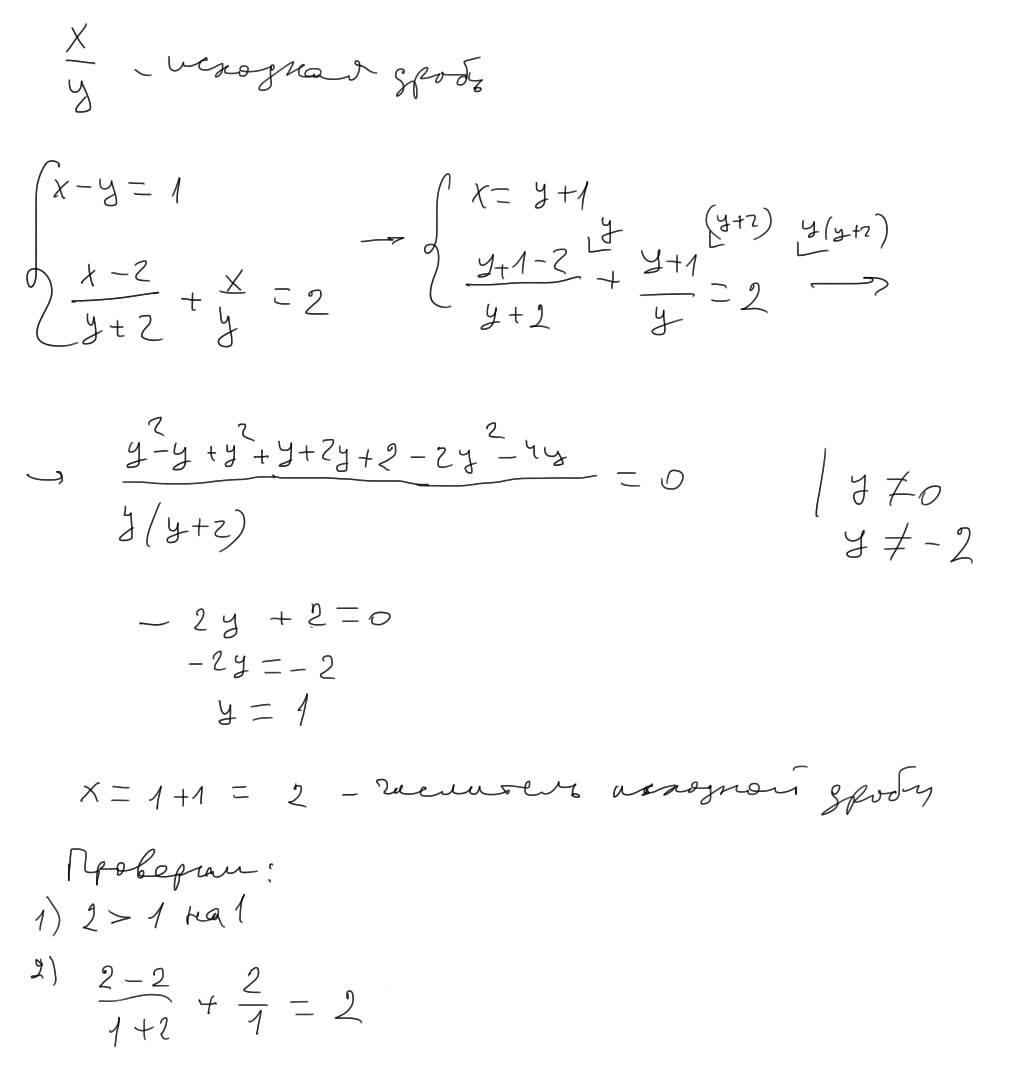 x/y - исходная дробь
{ x-y = 1 → { x = y+1
(x-2)/(y+2) + x/y = 2 (y+1-2)/(y+2) + (y+1)/y = 2 → y (y+2) y(y+2)
→ (y²-y+y²+y+2y+2-2y²-4y)/(y(y+2)) = 0 | y ≠ 0
y ≠ -2
- 2y + 2 = 0
-2y = -2
y = 1
x = 1+1 = 2 - числитель исходной дроби
Проверим:
1) 2 > 1 на 1
2) (2-2)/(1+2) + 2/1 = 2